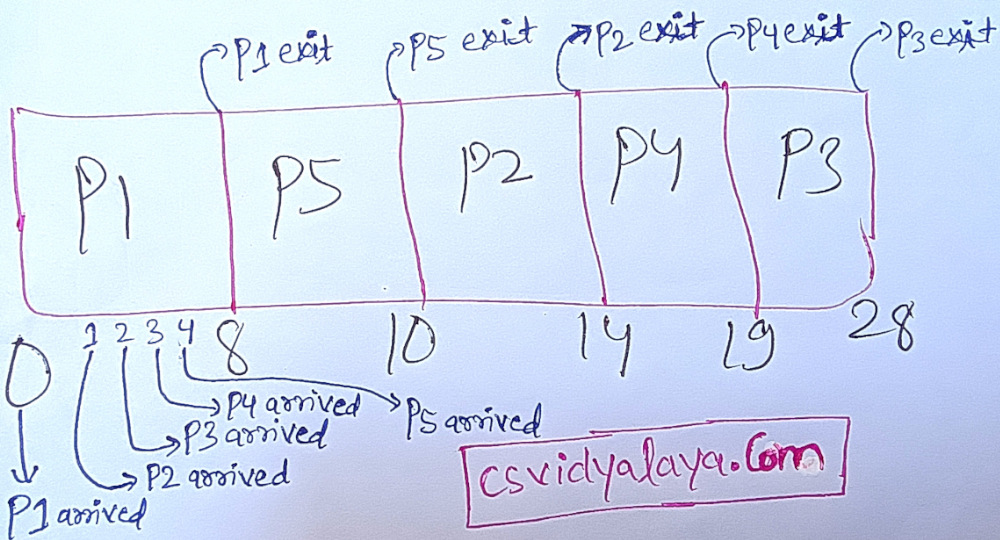 P1 exit
P5 exit
P2 exit
P4 exit
P3 exit
P1
P5
P2
P4
P3
0
1 2 3 4
8
10
14
19
28
P4 arrived
P5 arrived
P3 arrived
P2 arrived
P1 arrived
csvidyalaya.com